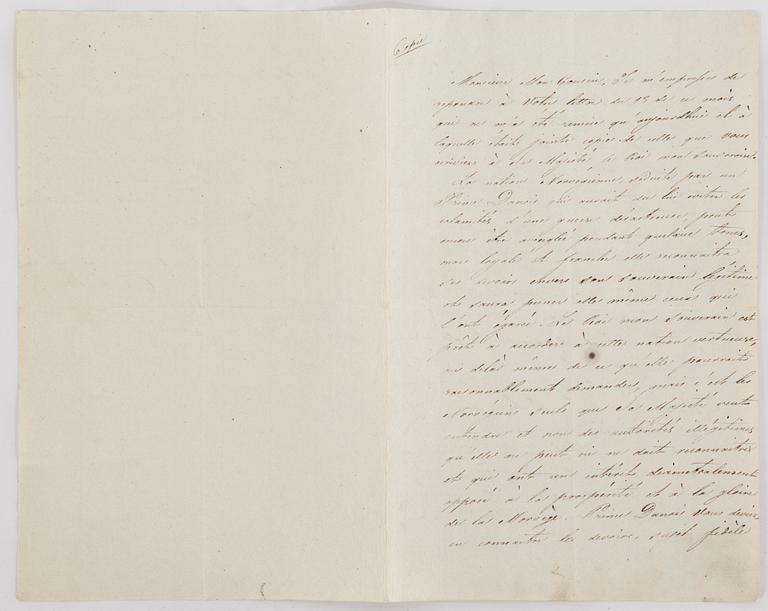 Copie
Monsieur Mon Cousin, Je m'empresse de
repondre à Votre lettre du 13 de ce mois
qui ne m'a été remise qu'aujourdhui et à
laquelle étoits jointe copie de celle que vous
écriviez à Sa Majesté le Roi mon Souverain.
La nation Norvégienne, séduite par un
Prince Danois qui aurait du lui éviter les
calamités d'une guerre désastreuse, peut
encore être aveuglée pendant quelque tems,
mais loyale et franche elle reconnaitra
ses devoirs envers son Souverain légitime
et saura punir elle même ceux qui
l'ont égarée. Le Roi mon Souverain est
prêt à accorder à cette nation vertueuse,
au delà même de ce qu'elle pourrait
raisonnablement demander, mais c'est les
Norvégiens seuls que Sa Majesté veut
entendre et non des autorités illégitimes
qu'elle ne peut ni ne doit reconnaitre
et qui ont un intérêt diametralement
opposé à la prospérité et à la gloire
de la Norvège. Prince Danois Vous deviez
en connaitre les devoirs, sujet fidèle